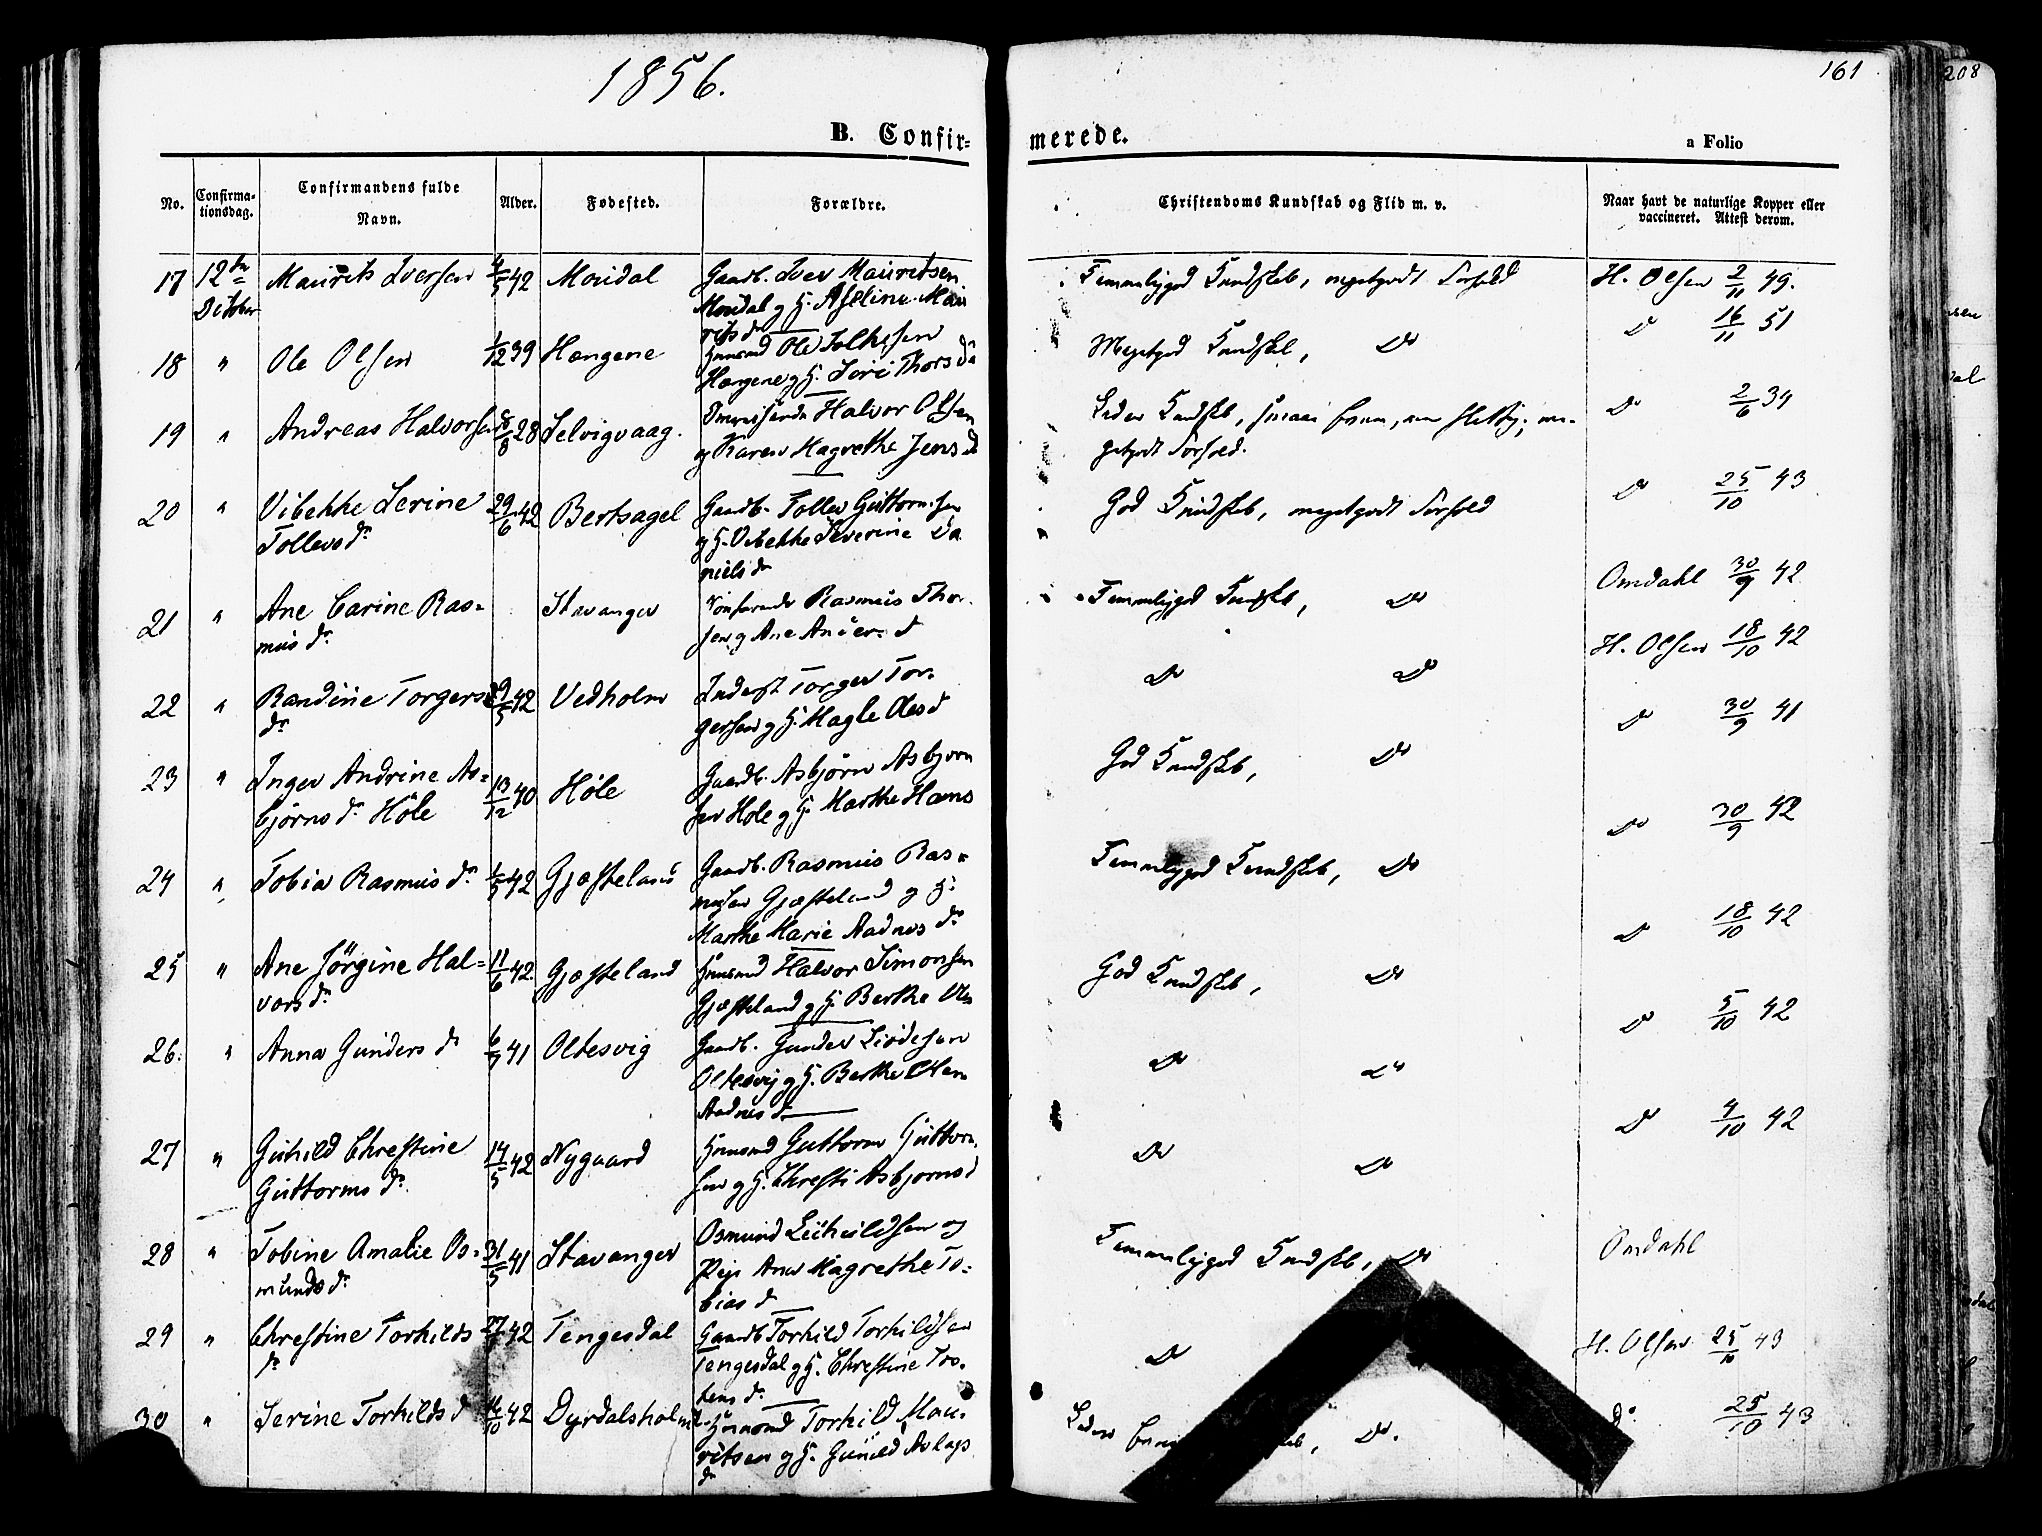 1856.
161
208
B. Confir-
merede.
a Folio
No.
Confirma-
tionsdag.
Confirmandens fulde
Navn.
Alder.
Fødested.
Forældre.
Christendoms Kundskab og Flid m. v.
Naar havt de naturlige Kopper eller
vaccineret. Attest derom.
17 12te Maurits Iversen 4/5 42 Mondal Gaardb. Iver Mauritsen
Oktober Mondal og H. Aseline Mau
rits dr
Temmeliggod Kundskab, megetgodt Forhold H. Olsen 2/11 49.
18 " Ole Olsen 1/12 39 Hængene Huusmd Ole Tolkesen
Hængene og H. Siri Thorsdr
Megetgod Kundskab, Do Do 16/11 51
19 " Andreas Halvorsen 28 Selvigvaag. Halvor Olsen
og Karen Magrethe Jensd
Kundskab, me-
getgodt Forhold. Do 2/6 34
20 " Vibekke Serine 29/6 42 Bertsagel Gaardb. Tollev Guttormsen
Tollevsdr og H. Vibekke Severine Da
nielsdr
God Kundskab, megetgodt Forhold Do 25/10 43
21 " Ane Carine Ras- Stavanger Rasmus Thor-
musdr sen og Ane
Temmeliggod Kundskab, Do Omdahl 30/9 42
22 " Randine Torgers 29/5 42 Vedholm Inderst Torger Tor-
dr gersen og H. Magle Olesd
Do Do H. Olsen 18/10 42
23 " Inger Andrine As- 13/12 40 Høle Gaardb. Asbjörn Asbjörn
bjørnsdr Høle sen Høle og H. Marthe Hans
God Kundskab, Do Do 30/9 41
24 " Tobia Rasmusdr 1/5 42 Gjæsteland Gaardb. Rasmus Ras-
musen Gjæsteland og H.
Marthe Marie Aadnesdr
Temmeliggod Kundskab, Do Do 30/9 42
25 " Ane Jörgine Hal- 11/6 42 Gjæsteland Huusmd Halvor Simonsen
vorsdr Gjæsteland og H. Berthe Oles
God Kundskab, Do Do 18/10 42
26. " Anna Gundersdr 41 Oltesvig Gaardb. Gunder
Oltesvig og H. Berthe
Aadnesdr
Do Do Do 5/10 42
27 " Guhild Christine 14/5 42 Nygaard Huusmd Guttorm Guttorm-
Guttormsdr sen og H. Christi Asbjornsd
Do Do Do 4/10 42
28 " Tobine Amalie Os- 31/5 41 Stavanger Osmund og
mundsdr Pige Ane Magrethe To-
biasd
Temmeliggod Kundskab, Do Omdahl
29 " Christine Torkilds 42 Tengesdal Gaardb Torkild Torkildsen
dr Tengesdal og H. Christine Tos-
tensdr
Do H. Olsen 25/10 43
30 " Serine Torkildsd 16/10 42 Dyrdalsholm Huusmd Torkild Mau-
ritsen og H. Gunild Aslags
dr
Do. do. 25/10 43